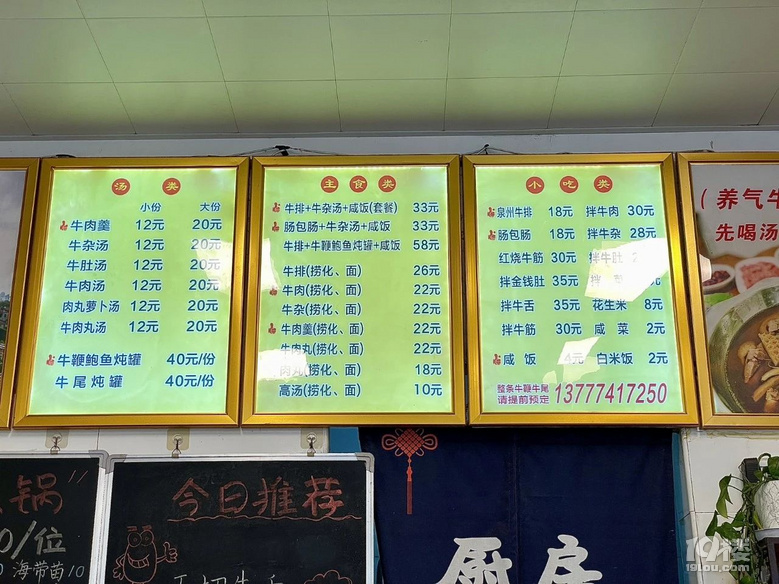 汤类
小份 大份
牛肉羹 12元 20元
牛杂汤 12元 20元
牛肚汤 12元 20元
牛肉汤 12元 20元
肉丸萝卜汤 12元 20元
牛肉丸汤 12元 20元
牛鞭鲍鱼炖罐 40元/份
牛尾炖罐 40元/份
主食类
牛排+牛杂汤+咸饭(套餐) 33元
肠包肠+牛杂汤+咸饭 33元
牛排+牛鞭鲍鱼炖罐+咸饭 58元
牛排(捞化、面) 26元
牛肉(捞化、面) 22元
牛杂(捞化、面) 22元
牛肉羹(捞化、面) 22元
牛肉丸(捞化、面) 22元
肉丸(捞化、面) 18元
高汤(捞化、面) 10元
小吃类
泉州牛排 18元 拌牛肉 30元
肠包肠 18元 拌牛杂 28元
红烧牛筋 30元 拌牛肚
拌金钱肚 35元 拌
拌牛舌 35元 花生米 8元
拌牛筋 30元 咸菜 2元
咸饭 4元 白米饭 2元
整条牛鞭牛尾
请提前预定 13777417250
(养气牛
先喝汤
锅”
0/位
海带苗10
今日推荐
厨房
19楼
19lou.com